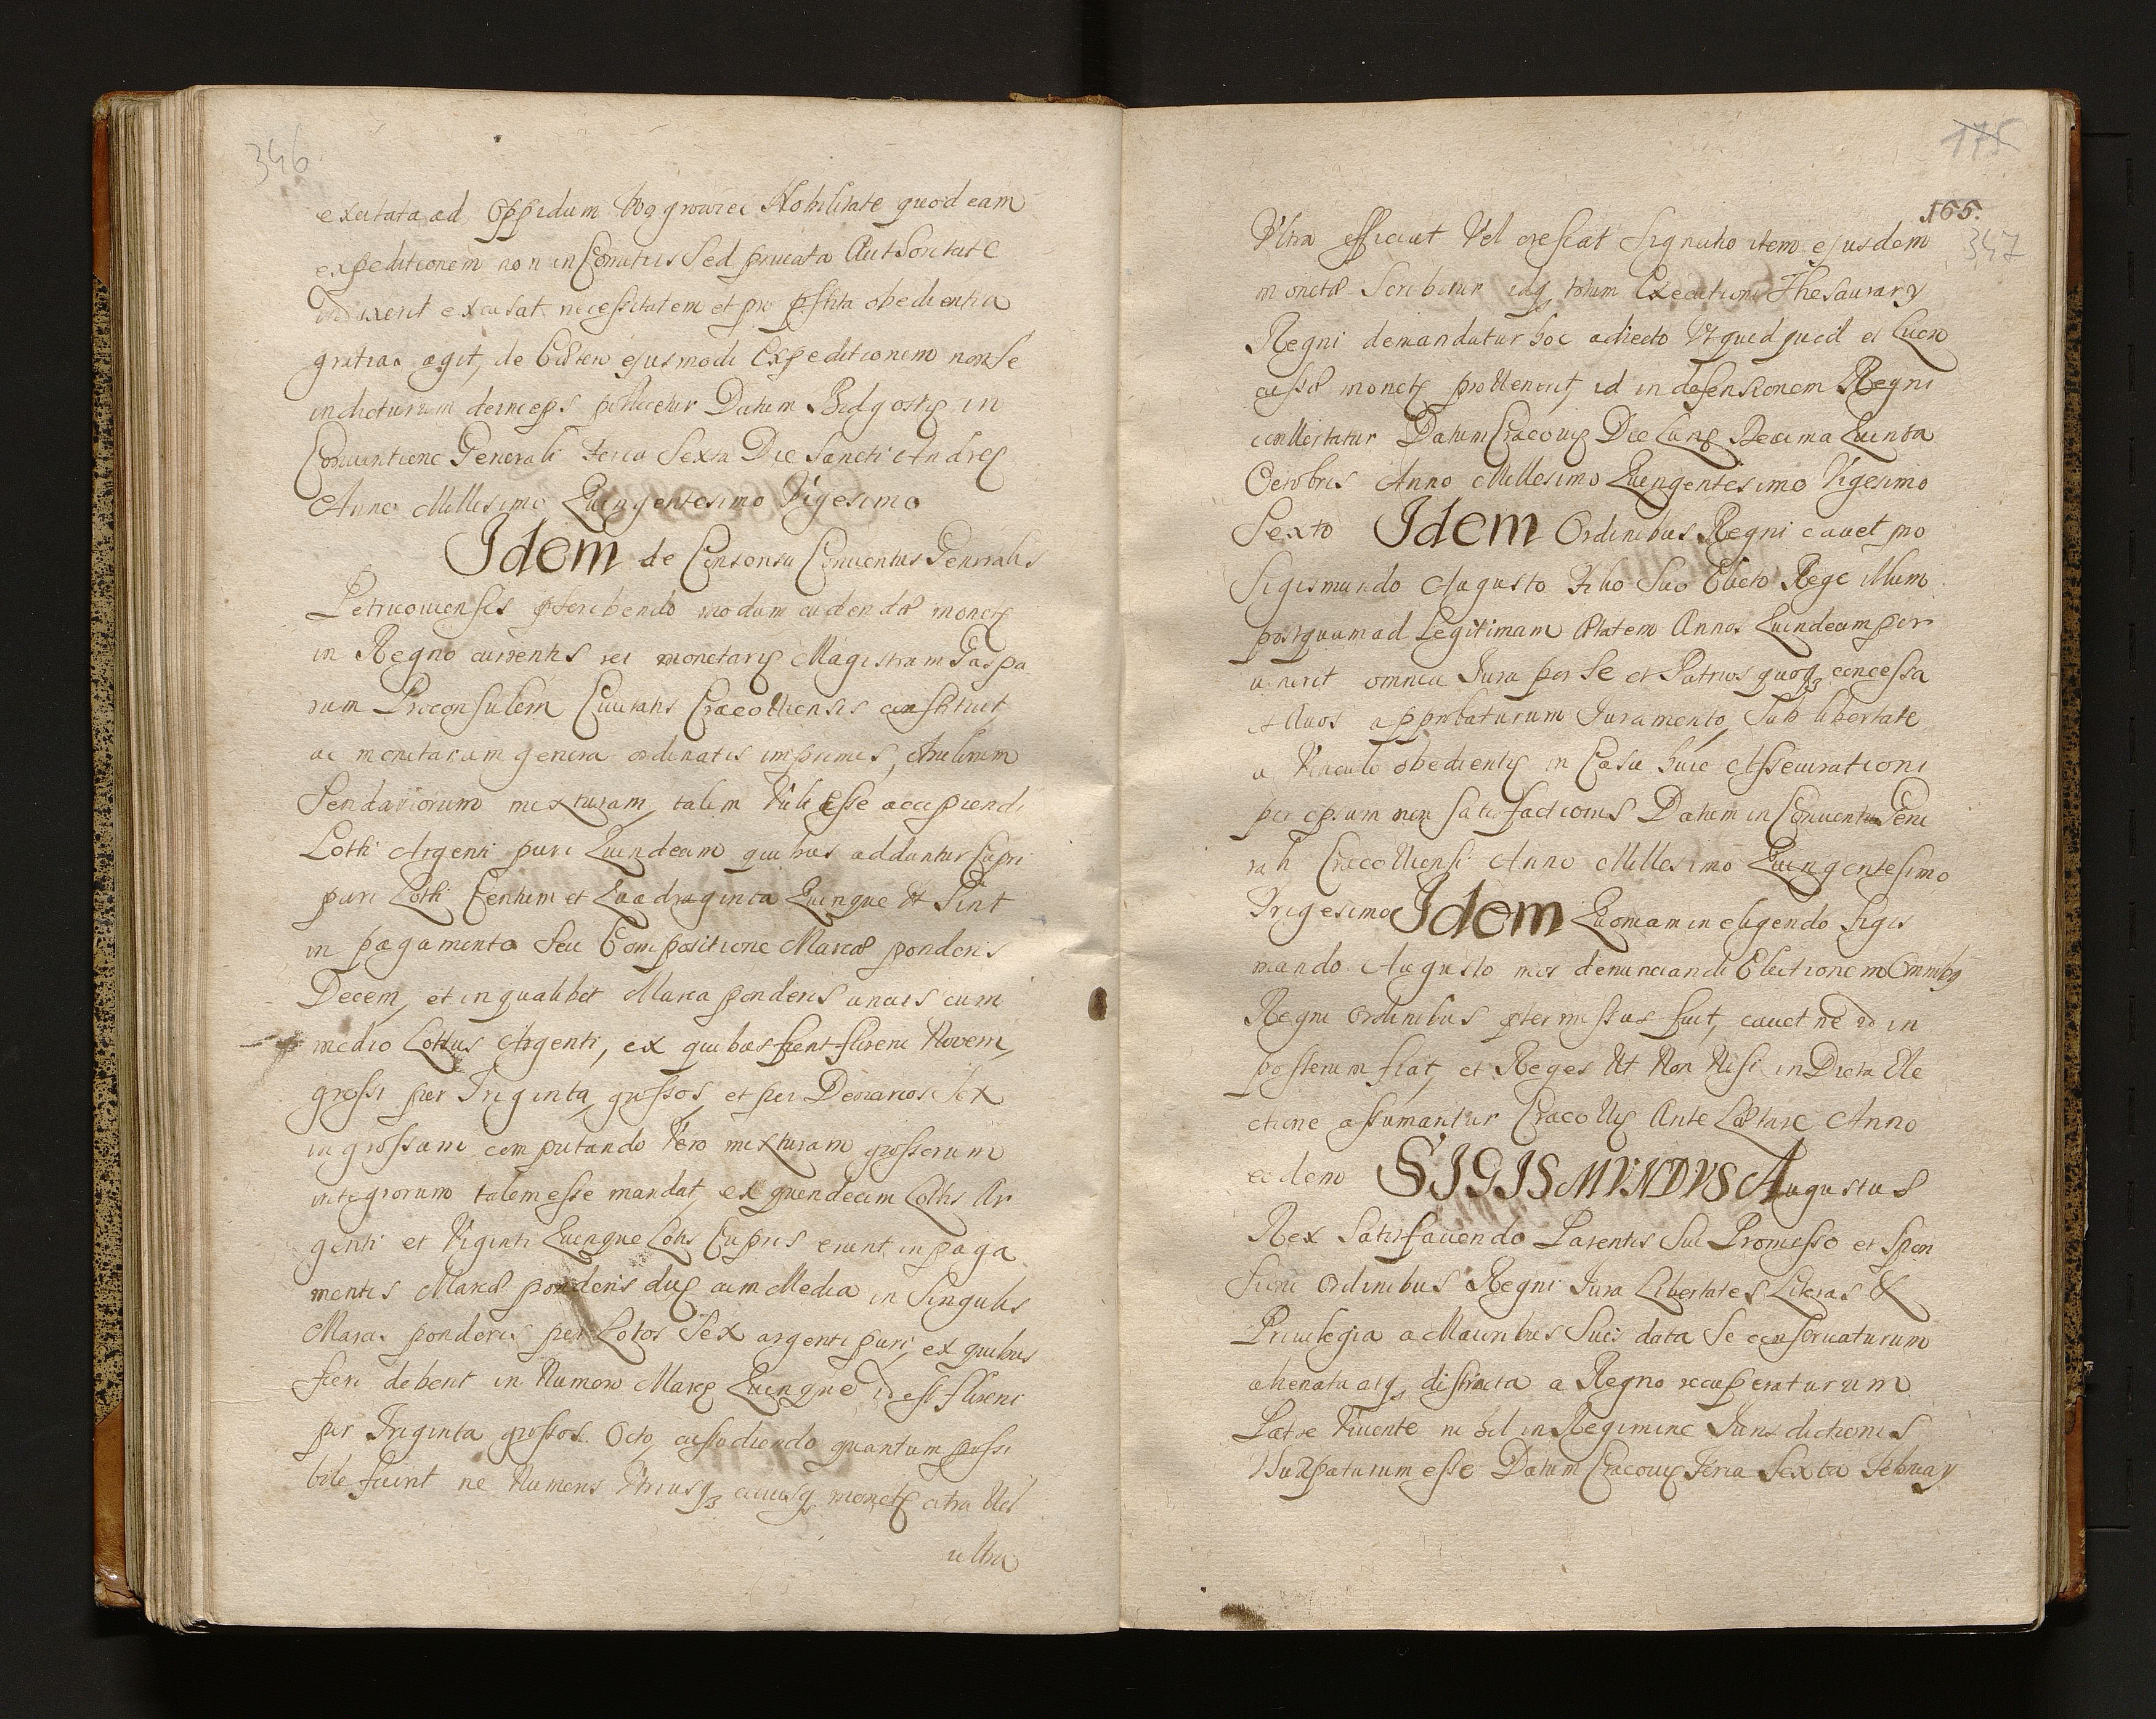 346
excitata ad Oppidum Wągrowiec Nobilitate quod eam
expeditionem non in Comitiis Sed privata Authoritate
induxerit excusat necessitatem et pro pstita obedientia
gratias agit, de Caetero ejusmodi Expeditionem non se
indicturum deinceps pollicetur Datum Bidgostię in
Conventione Generali feria Sexta Die Sancti Andreę
Anno Millesimo Quingentesimo Vigesimo
Idem de Consensu Conventus Generalis
Petricoviensis pscribendo modum cudendæ monetę
in Regno currentis rei monetarię Magistrum Gaspa
rum Proconsulem Civitatis Cracoviensis constituit
ac monetarum genera ordinatis imprimis,
mixturam, talem Vult Esse accipiendi
Lothi Argenti puri Quindecim quibus addantur Cupri
puri Lothi Centum et Quadraginta Quinque Ut Sint
in pagamento Seu Compositione Marcæ ponderis
Decem, et in qualibet Marca ponderis unus cum
medio Lottus Argenti, ex quibus fient floreni Novem,
grossi per Triginta grossos, et per Denarios Sex
in grossum computando Vero mixturam grossorum
integrorum talem esse mandat, ex quindecim Lothis Ar
genti et Viginti Quinque Lotis Cupris erunt in paga
mentis Marcæ ponderis duę cum Media in Singulis
Marcis ponderis per Lotos Sex argenti puri, ex quibus
fieri debent in Numero Marcę Quinque id est floreni
per Triginta grossos Octo, custodiendo quantum possi
bile fuerit ne Numerus Utriusq cuiusq monetę citra Vel
ultra
175
165.
347
Ultra efficiat Vel crescat Signatio item ejusdem
monetæ Scribitur idq totum Executioni Thesaurary
Regni demandatur hoc adiecto Ut quidquid ex Lucro
cussæ monetę proVenerit, id in defensionem Regni
conVertatur Datum Cracovię Die Lunę Decima Quinta
Octobris Anno Millesimo Quingentesimo Vigesimo
Sexto Idem Ordinibus Regni cavet pro
Sigismundo Augusto Filio Suo Electo Rege illum
postquam ad Legitimam Ætatem Annos Quindecim per
venerit omnia Jura per Se et Patrios quoq concessa
et Avos approbaturum Juramento, Sub libertate
a Vinculo obedientię in Casu huic Assecurationi
per ipsum non satisfactionis Datum in Conventu Gene
rali CracoViensi Anno Millesimo Quingentesimo
Trigesimo Idem Quoniam in eligendo Sigis
mundo Augusto mos denunciandi Electionem Omnibq
Regni Ordinibus ptermissus fuit, cavet ne id in
posterum fiat, et Reges Ut Non Nisi in Dicta Ele
ctione assumantur CracoVię Ante Lætare Anno
eodem SIGISMVNDVS Augustus
Rex Satisfaciendo Parentis Sui Promisso et Spon
sioni Ordinibus Regni Jura Libertates Literas &
Privilegia a Maioribus Suis data Se conservaturum
alienata atq distracta a Regno recuperaturum
Patre Vivente nihil in Regimine Jurisdictionis
Usurpaturum esse Datum Cracovię Feria Sexta Februay